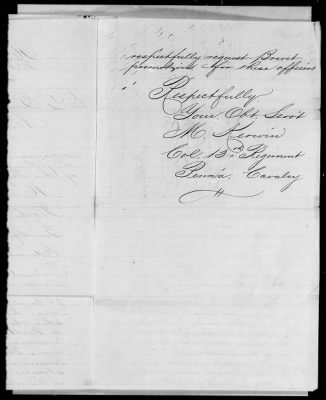 respectfully request Brevet
promotions for these officers
Respectfully
Your Obt. Servt
M. Kerwin
Col. 13th Regiment
Penn'a. Cavalry